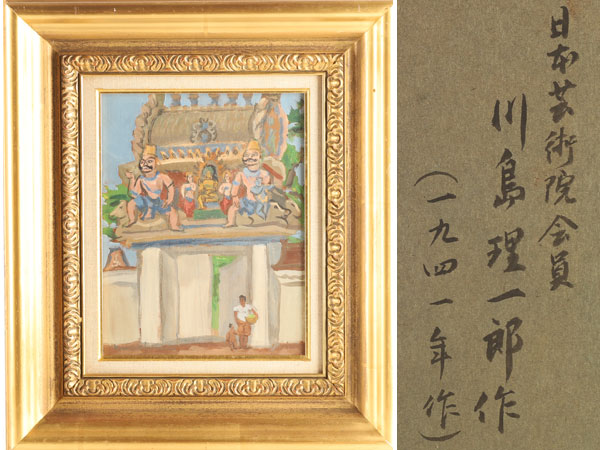 日本芸術院会員
川島理一郎作
（一九四一年作）